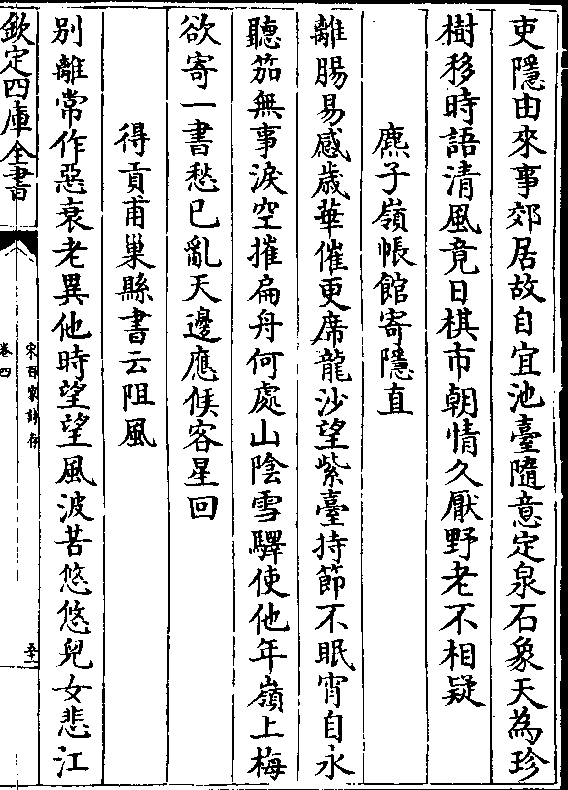 吏隱由來事郊居故自宜池臺隨意定泉石象天為珍
樹移時語清風竟日棋市朝情久厭野老不相疑
麃子嶺帳館寄隱直
離腸易感歲華催更席龍沙望紫臺持節不眠宵自永
聽笳無事淚空摧扁舟何處山陰雪驛使他年嶺上梅
欲寄一書愁已亂天邊應候客星回
得貢甫巢縣書云阻風
別離常作惡衰老異他時望望風波苦悠悠兒女悲江
欽定四庫全書
宋百家詩存
卷四